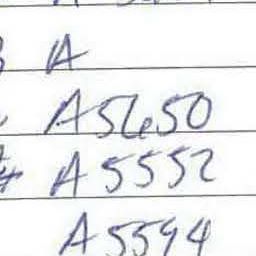 A
A5650
A5552
A5594